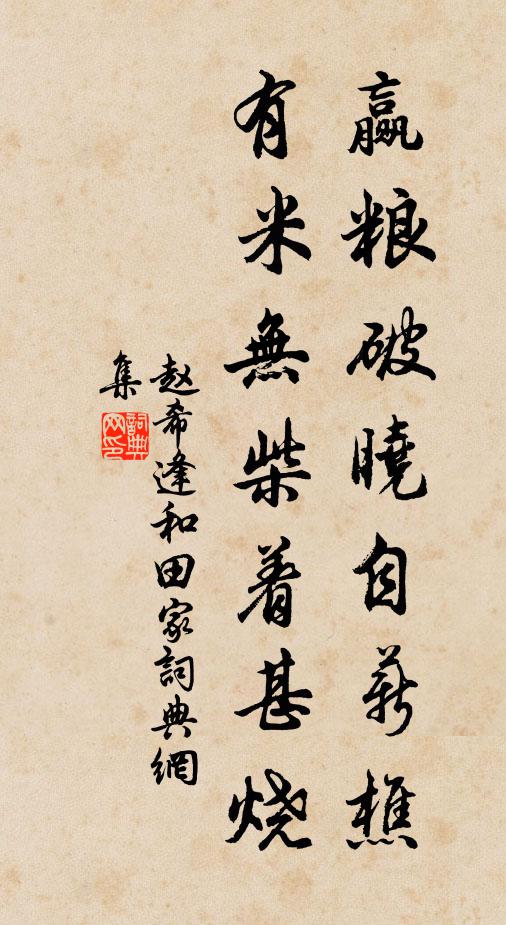 赢粮破曉自薪樵
有米無柴着甚烧
赵希逢和田家詞典網
集
詞典网印